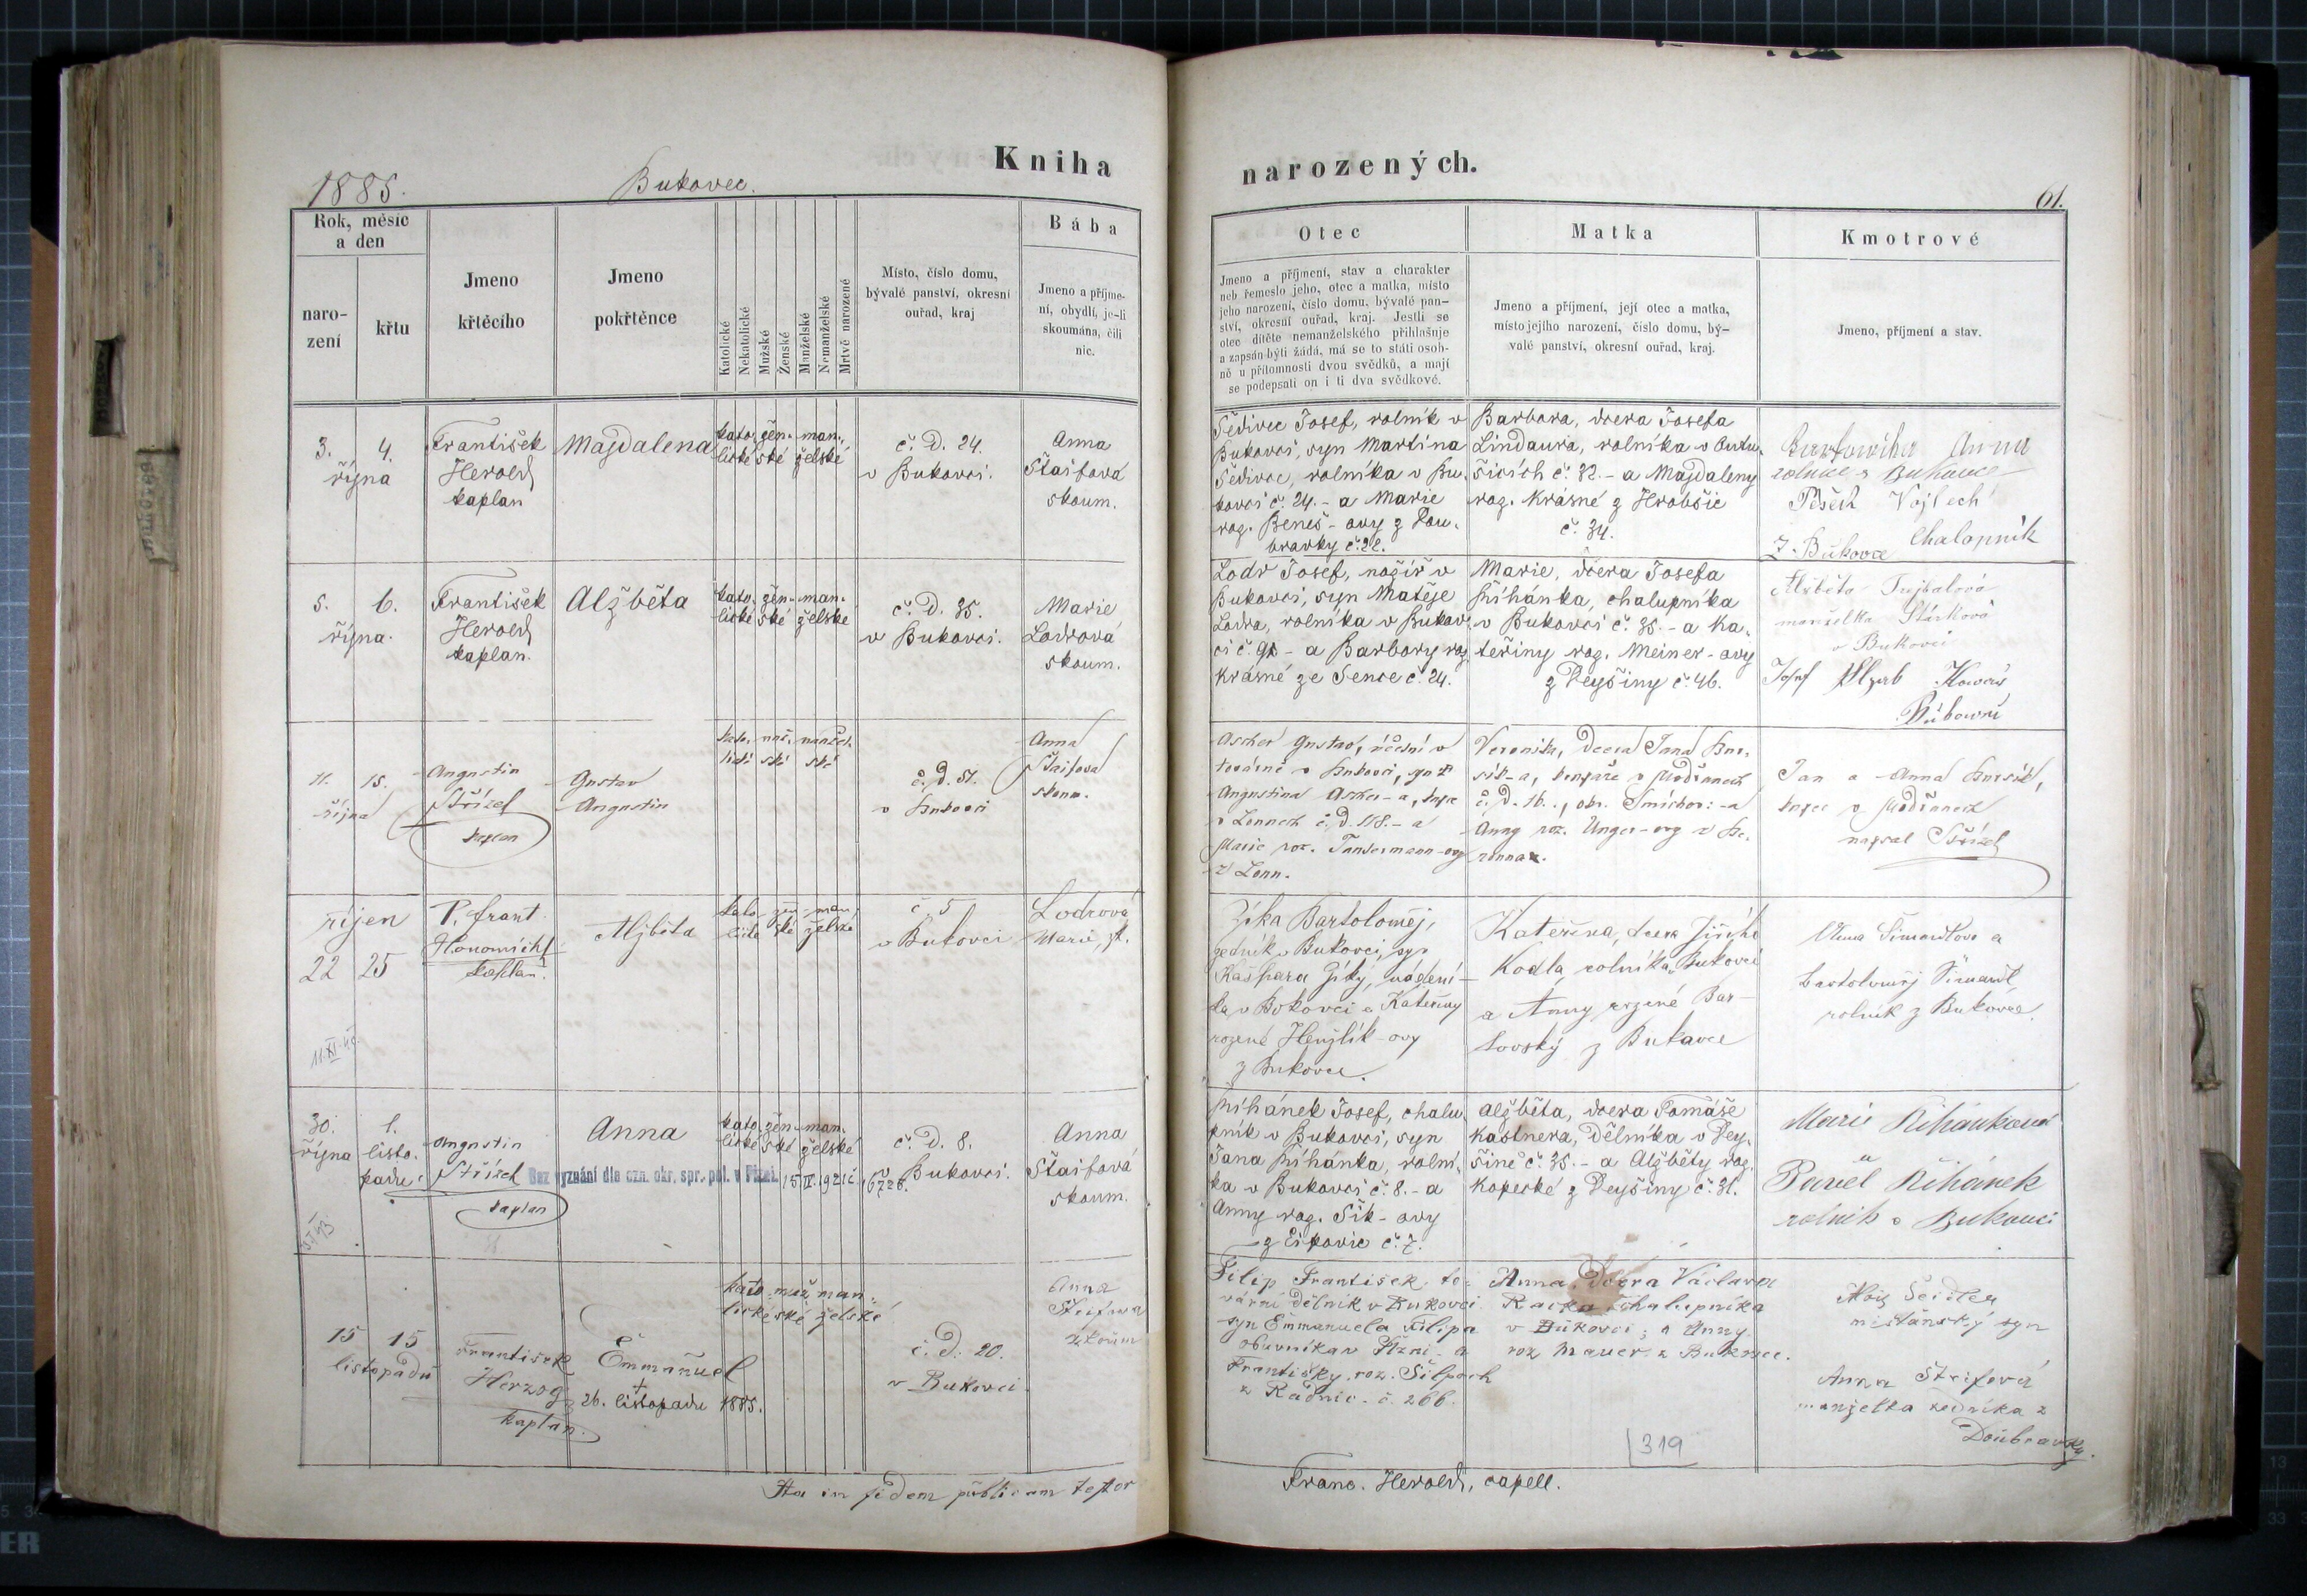 Kniha
narozených.
1885.
Bukovec.
61.
Rok, měsíc
a den
naro-
zení
křtu
Jmeno
křtěcího
Jmeno
pokřtěnce
Katolické
Nekatolické
Mužské
Ženské
Manželské
Nemanželské
Mrtvě narozené
Místo, číslo domu,
bývalé panství, okresní
ouřad, kraj
Bába
Jmeno a příjme-
ní, obydlí, je-li
skoumána, čili
nic.
Otec
Jmeno a příjmení, stav a charakter
neb řemeslo jeho, otec a matka, místo
jeho narození, číslo domu, bývalé pan-
ství, okresní ouřad, kraj. Jestli se
otec dítěte nemanželského přihlašuje
a zapsán býti žádá, má se to státi osob-
ně u přítomnosti dvou svědků, a mají
se podepsati on i ti dva svědkové.
Matka
Jmeno a příjmení, její otec a matka,
místo jejího narození, číslo domu, bý-
valé panství, okresní ouřad, kraj.
Kmotrové
Jmeno, příjmení a stav.
3. 4.
října
František
Herold
kaplan
Magdalena
kato- žen- man-
lické ské želské
č. D. 24.
v Bukovci.
Anna
Štaifová
skoum.
Šedivec Josef, rolník v
Bukovci, syn Martina
Šedivce, rolníka v Bu-
kovci č. 24. - a Marie
roz. Beneš-ovy z Dou-
bravky č. 22.
Barbora, dcera Josefa
Lindaura, rolníka v
šicích č. 32. - a Magdaleny
roz. Krásné z Hrobšic
č. 34.
Anna
rolnice z Bukovce
Vojtech
Chalopnik
z Bukovce
5. 6.
října.
František
Herold
kaplan.
Alžběta
kato- žen- man-
lické ské želské
č. D. 35.
v Bukovci.
Marie
Lodrová
skoum.
Lodr Josef, nožíř v
Bukovci, syn Matěje
Lodra, rolníka v Bukov-
ci č. - a Barbory roz.
Krásné ze Sence č. 24.
Marie, dcera Josefa
Řihánka, chalupníka
v Bukovci č. 35. - a Ka-
teřiny roz. Meiner-ovy
z Deyšiny č. 46.
Alžběta
manželka
v Bukovci
Josef
11. 15.
října
Augustin
Střízel
kaplan
Gustav
Augustin
kato- muž- manžel-
lické ské ské
č. D. 51.
v Bukovci
Anna
Štaifova
skoum.
Ascher Gustav, účetní v
továrně v Bukovci, syn
Augustina Ascher-a, kupce
v Lounech č. D. 118. - a
Marie roz.
z Loun.
Veronika, dcera Jana
v Modřanech
č. D. 16., okr. Smíchov: - a
Anny roz. Unger-ovy z
Jan a Anna
kupec v Modřanech
napsal Střízel
říjen
22 25
P. Frant.
Honomichl
kaplan.
Alžběta
kato- žen- man-
lické ské želské
č. 5
v Bukovci
Lodrová
Marie, zk.
11. XI. 40.
Zíka Bartoloměj,
zedník v Bukovci, syn
Kašpara Zíky, nádení-
ka v Bukovci a Kateřiny
rozené Henžlík-ovy
z Bukovce.
Kateřina, dcera Jiřího
Kodla, rolníka, Bukovci
a Anny rozené Bar-
tovský z Bukovce
Anna Šimandlova a
Bartoloměj Šimandl,
rolník z Bukovce.
30. 1.
října listo-
padu.
Augustin
Střízel
kaplan
Anna
Bez vyznání dle ozn. okr. spr. pol. v Plzni. 15 II. 1921 č.
kato- žen- man-
lické ské želské
č. D. 8.
v Bukovci.
Anna
Štaifová
skoum.
Řihánek Josef, chalu-
pník v Bukovci, syn
Jana Řihánka, rolní-
ka v Bukovci č. 8. - a
Anny roz. Šik-ovy
z Ejpovic č. 7.
Alžběta, dcera Tomáše
Kastnera, dělníka v Dey-
šině č. 35. - a Alžběty roz.
Kopecké z Deyšiny č. 31.
Marie Řihánková
a
Pavel Řihánek
rolník v Bukovci
15 15
listopadu
František
Herzog
kaplan.
Emmanuel
+
26. listopadu 1885.
kato- muž- man-
lické ské želské
č. D. 20.
v Bukovci
Anna
Štaifova
zkoum
Filip František, to-
vární dělník v Bukovci.
syn Emmanuela Filipa
obuvníka v Plzni - a
Františky roz.
z Radnic. č. 266.
Anna, Dcera Václava
chalupníka
v Bukovci; a Anny
roz. Mauer z Bukovce.
Alois Šeidler
měšťanský syn
Anna Štaifová
manželka zedníka z
Doubravky.
319
Ita in fidem publicam testor
Franc. Herold, capell.